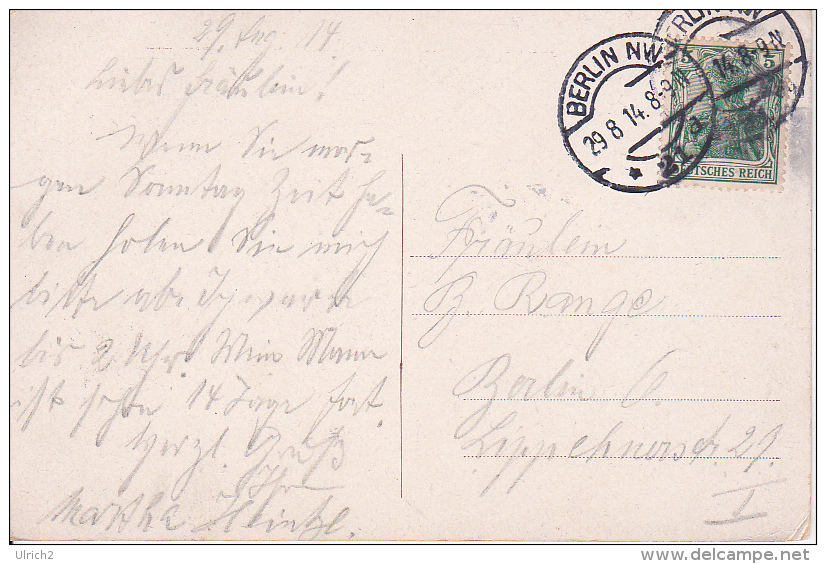 29. Aug. 14
Liebes Fräulein!
Wenn Sie mor-
gen Sonntag Zeit ha-
ben holen Sie mich
bitte abe Ich warte
bis 2 Uhr. Mein Mann
ist schon 14 Tage fort.
Herzl. Gruß
Ihre
Martha Heintze.
BERLIN NW
29 8 14. 8-9 N
* 21 a
BERLIN NW
14. 8-9 N
5 5
DEUTSCHES REICH
Fräulein
B. Range
Berlin O.
Lippehnerstr. 29.
I
Ulrich2
www.delcampe.net